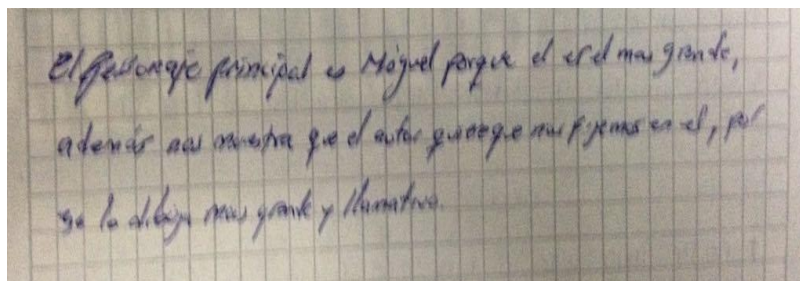 El personaje principal es Miguel porque el es el mas grande,
además nos muestra que el autor quiere que nos fijemos en el, por
eso lo dibuja mas grande y llamativo.